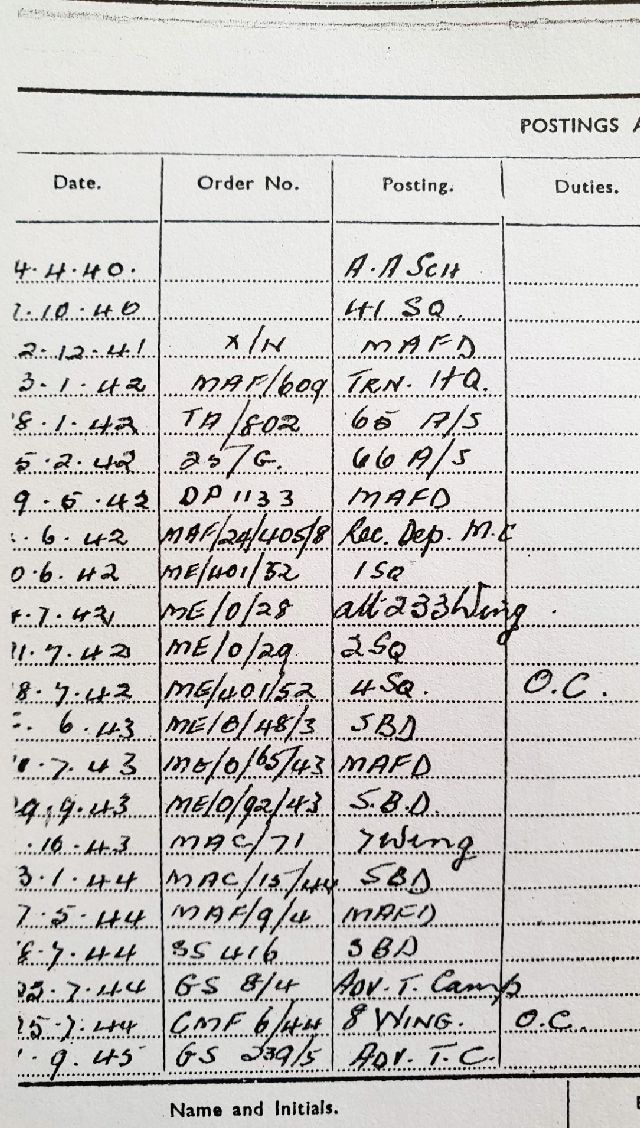 POSTINGS A
Date. Order No. Posting. Duties.
4.4.40. A.A SCH
.10.40 41 SQ.
2.12.41 X/N MAFD
3.1.42 MAF/609 TRN. HQ.
8.1.42 TA/802 65 A/S
5.2.42 25/G. 66 A/S
9.5.42 DP 1133 MAFD
.6.42 MAF/24/405/8 Rec. Dep. M.E
0.6.42 ME/401/52 1 SQ
.7.42 ME/0/28 att 233 Wing .
1.7.42 ME/0/29 2 SQ
8.7.42 ME/401/52 4 SQ. O.C.
. 6.43 ME/0/48/3 SBD
.7.43 ME/0/65/43 MAFD
9.9.43 ME/0/92/43 S.B.D.
.10.43 MAC/71 7 Wing
3.1.44 MAC/15/44 SBD
7.5.44 MAF/9/4 MAFD
8.7.44 SS 416 SBD
.7.44 GS 8/4 Adv. T. Camp
5.7.44 CMF 6/44 8 WING. O.C.
.9.45 GS 239/5 ADV. T.C.
Name and Initials.